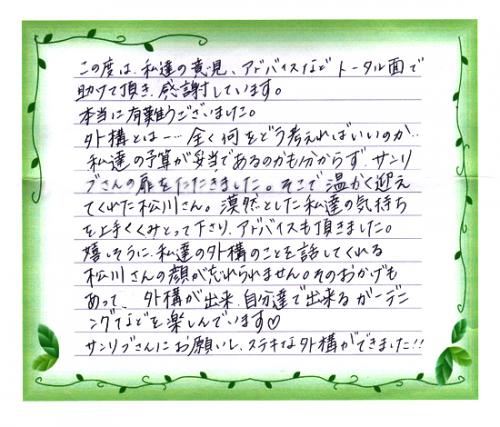 この度は、私達の意見、アドバイスなど トータル面で
助けて頂き、感謝しています。
本当に有難うございました。
外構とは…全く何をどう考えればいいのか…
私達の予算が妥当であるのかも分からず、サンリ
ブさんの扉をたたきました。そこで温かく迎え
てくれた松川さん。漠然とした私達の気持ち
を上手くくみとって下さり、アドバイスも頂きました。
嬉しそうに、私達の外構のことを話してくれる
松川さんの顔が忘れられません。そのおかげも
あって、外構が出来、自分達で出来るガーデニ
ングなどを楽しんでいます♡
サンリブさんにお願いし、ステキな外構ができました!!